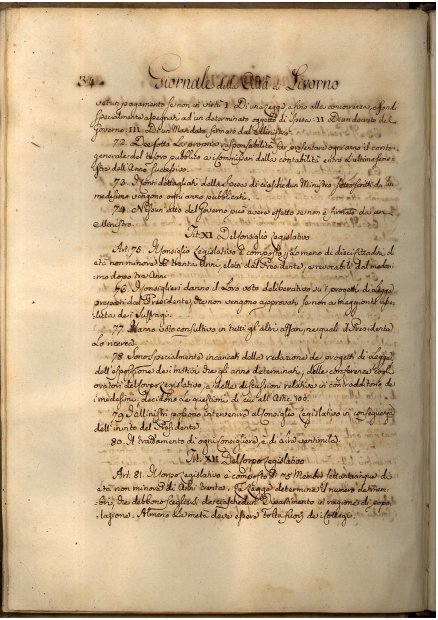 34 Giornale della Città di Livorno
vetun pagamento se non in virtù I. Di una legge, e fino alla concorrenza, e fondi
specialmente assegnati ad un determinato oggetto di spesa: II. D'un decreto del
Governo: III. D'un Mandato firmato dal Ministro.
72. Dee sotto la propria responsabilità far presentare ogni anno il conto
generale del tesoro pubblico ai Commissari della contabilità entro l'ultimo seme-
stre dell'Anno successivo.
73. I Conti dettagliati della spesa di ciaschedun Ministro sottoscritti da lui
medesimo vengono ogni anno pubblicati.
74. Nessun'atto del Governo può avere effetto se non è firmato da un
Ministro.
Tit. XI. Del Consiglio Legislativo
Art. 75. Il Consiglio Legislativo è composto di non meno di dieci Cittadini, di
età non minore di trenta Anni, eletti dal Presidente, e revocabili dal medesi-
mo dopo tre Anni
76. I Consiglieri danno il Loro voto deliberativo su i progetti di Legge
presentati dal Presidente, che non vengono approvati se non a maggiorità asso-
luta de i Suffragi.
77. Hanno voto consultivo in tutti gl'altri affari, ne i quali il Presidente
Lo ricerca.
78. Sono specialmente incaricati della redazione de progetti di Legge,
dell'esposizione de i motivi che gli anno determinati, delle conferenze cogli
oratori del Corpo Legislativo, e delle discussioni relative in contradditorio de
i medesimi. decidono Le questioni di cui all'Art.
79. I Ministri possono intervenire al Consiglio Legislativo in conseguenza
dell'invito del Presidente.
80. Il trattamento di ogni Consigliere, è di Lire seimila.
Tit. XII. Del Corpo Legislativo
Art. 81. Il Corpo Legislativo è composto di 75 Membri settantacinque di
età non minore di Anni trenta. La Legge determina il numero de Mem-
bri, che debbono scegliersi da ciaschedun Dipartimento in ragione di popo-
lazione. Almeno La metà deve essere tolta fuori de i Collegi.